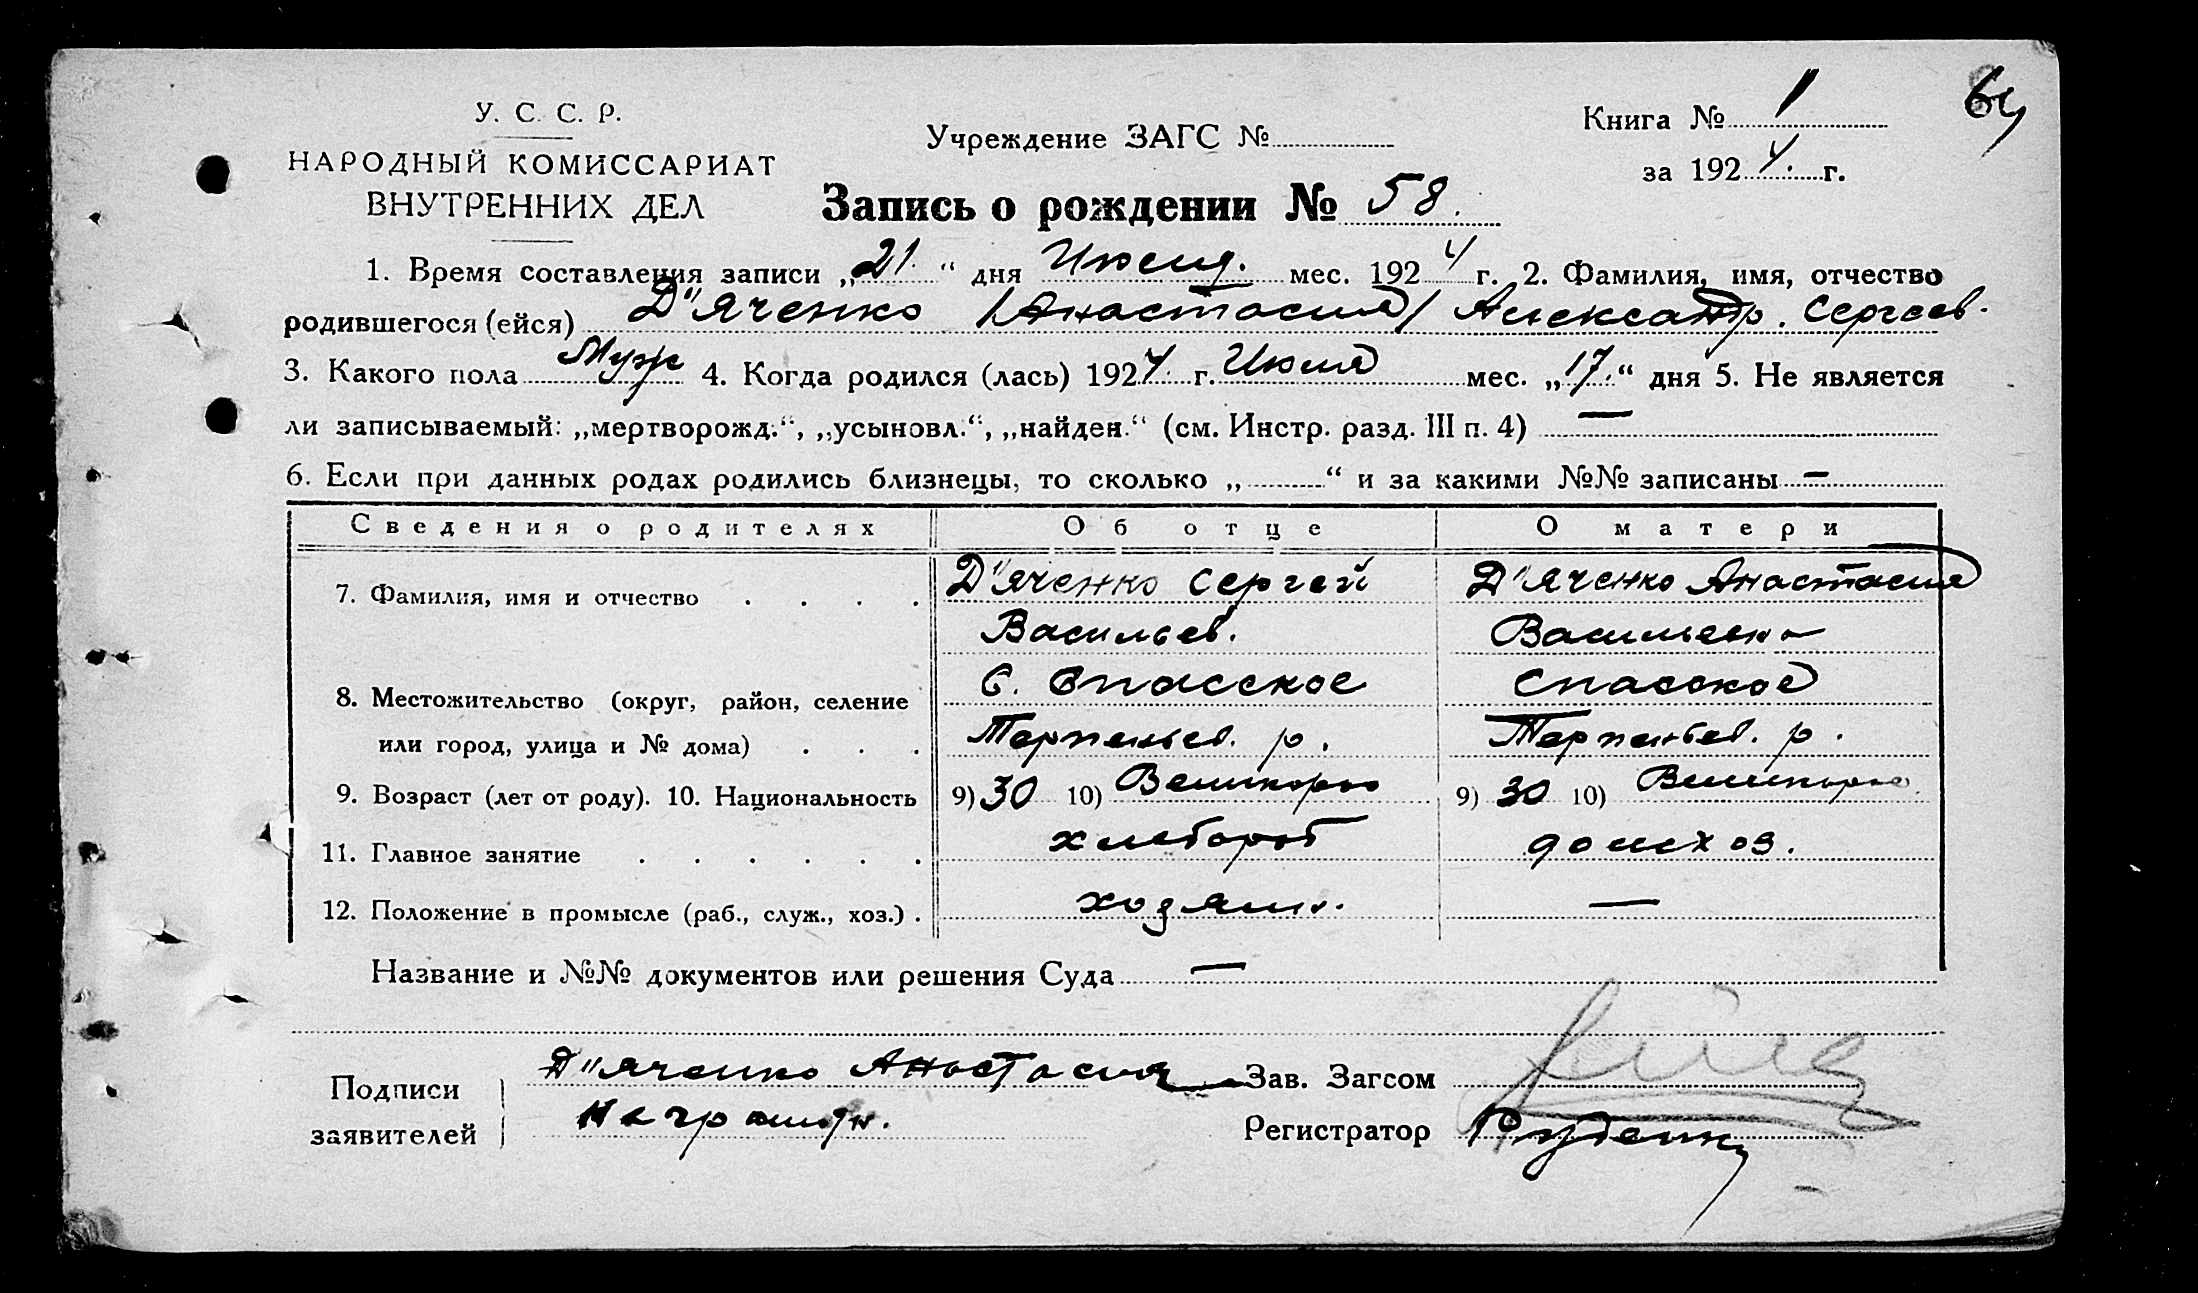 У. С. С. Р.
НАРОДНЫЙ КОМИССАРИАТ
ВНУТРЕННИХ ДЕЛ
Учреждение ЗАГС №
Книга № 1
за 1924 г.
Запись о рождении № 58.
1. Время составления записи „21.“ дня Июля. мес. 1924 г. 2. Фамилия, имя, отчество
родившегося (ейся) Д"яченко /Анастасия/ Александр. Сергеев.
3. Какого пола Муж 4. Когда родился (лась) 1924 г. Июля мес. „17.“ дня 5. Не является
ли записываемый: „мертворожд.“, „усыновл.“, „найден.“ (см. Инстр. разд. III п. 4) —
6. Если при данных родах родились близнецы, то сколько „ “ и за какими №№ записаны —
Сведения о родителях Об отце О матери
7. Фамилия, имя и отчество . . . . Д"яченко Сергей Д"яченко Анастасия
Васильев. Васильевна
С. Спасское Спасское
8. Местожительство (округ, район, селение
или город, улица и № дома) . . . Терпеньев. р. Терпеньев. р.
9. Возраст (лет от роду). 10. Национальность 9) 30 10) Великорос 9) 30 10) Великорос.
11. Главное занятие . . . . . . хлебороб домхоз.
12. Положение в промысле (раб., служ., хоз.) . хозяин. —
Название и №№ документов или решения Суда —
Подписи
заявителей
Д"яченко Анастасия
неграмотн.
Зав. Загсом
Регистратор Руденко